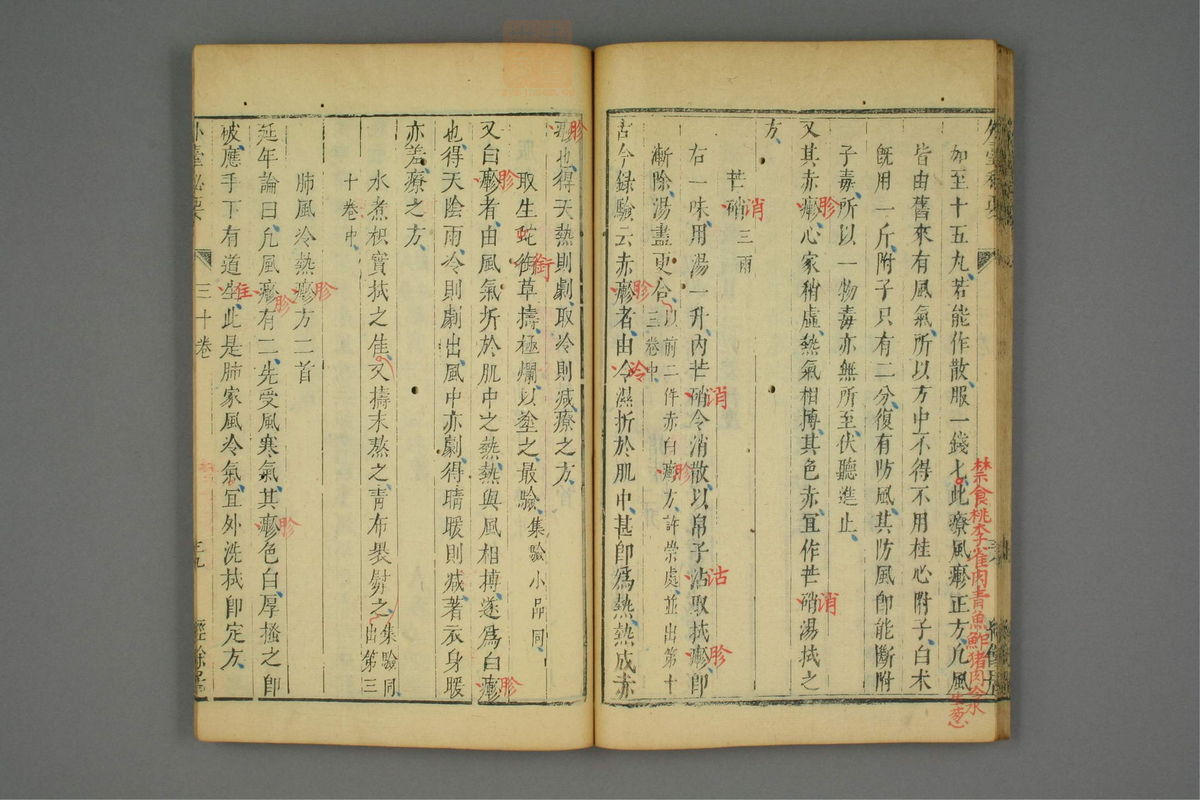 如至十五丸若能作散服一錢匕此療風㾦正方凡風
禁食桃李雀肉青魚鮓猪肉冷水
生葱
皆由舊來有風氣所以方中不得不用桂心附子白朮
既用一斤附子只有二分復有防風其防風即能斷附
子毒所以一物毒亦無所至伏聽進止
又其赤㾦心家稍虛熱氣相搏其色赤宜作芒硝湯拭之
胗
消
方
芒硝三兩
消
右一味用湯一升內芒硝令消散以帛子沾取拭㾦即
消
沾
胗
漸除湯盡更合
以前二件赤白㾦方許崇處並出第十
三卷中
胗
古今録驗云赤㾦者由令濕折於肌中甚即爲熱熱成赤
胗
冷
㾦也得天熱則劇取冷則减療之方
胗
取生蛇衘草擣極爛以塗之最驗
集驗小品同
蛇
銜
又曰㾦者由風氣折於肌中之熱熱與風相搏遂爲白㾦
胗
胗
也得天陰雨冷則劇出風中亦劇得晴暖則减著衣身暖
亦差療之方
水煮枳實拭之佳又擣末熬之青布裹熨之
集驗同
出第三
十卷中
肺風冷熱㾦方二首
胗
延年論曰凡風㾦有二先受風寒氣其㾦色白厚搔之即
胗
胗
破應手下有道生此是肺家風冷氣宜外洗拭即定方
隹
三十卷